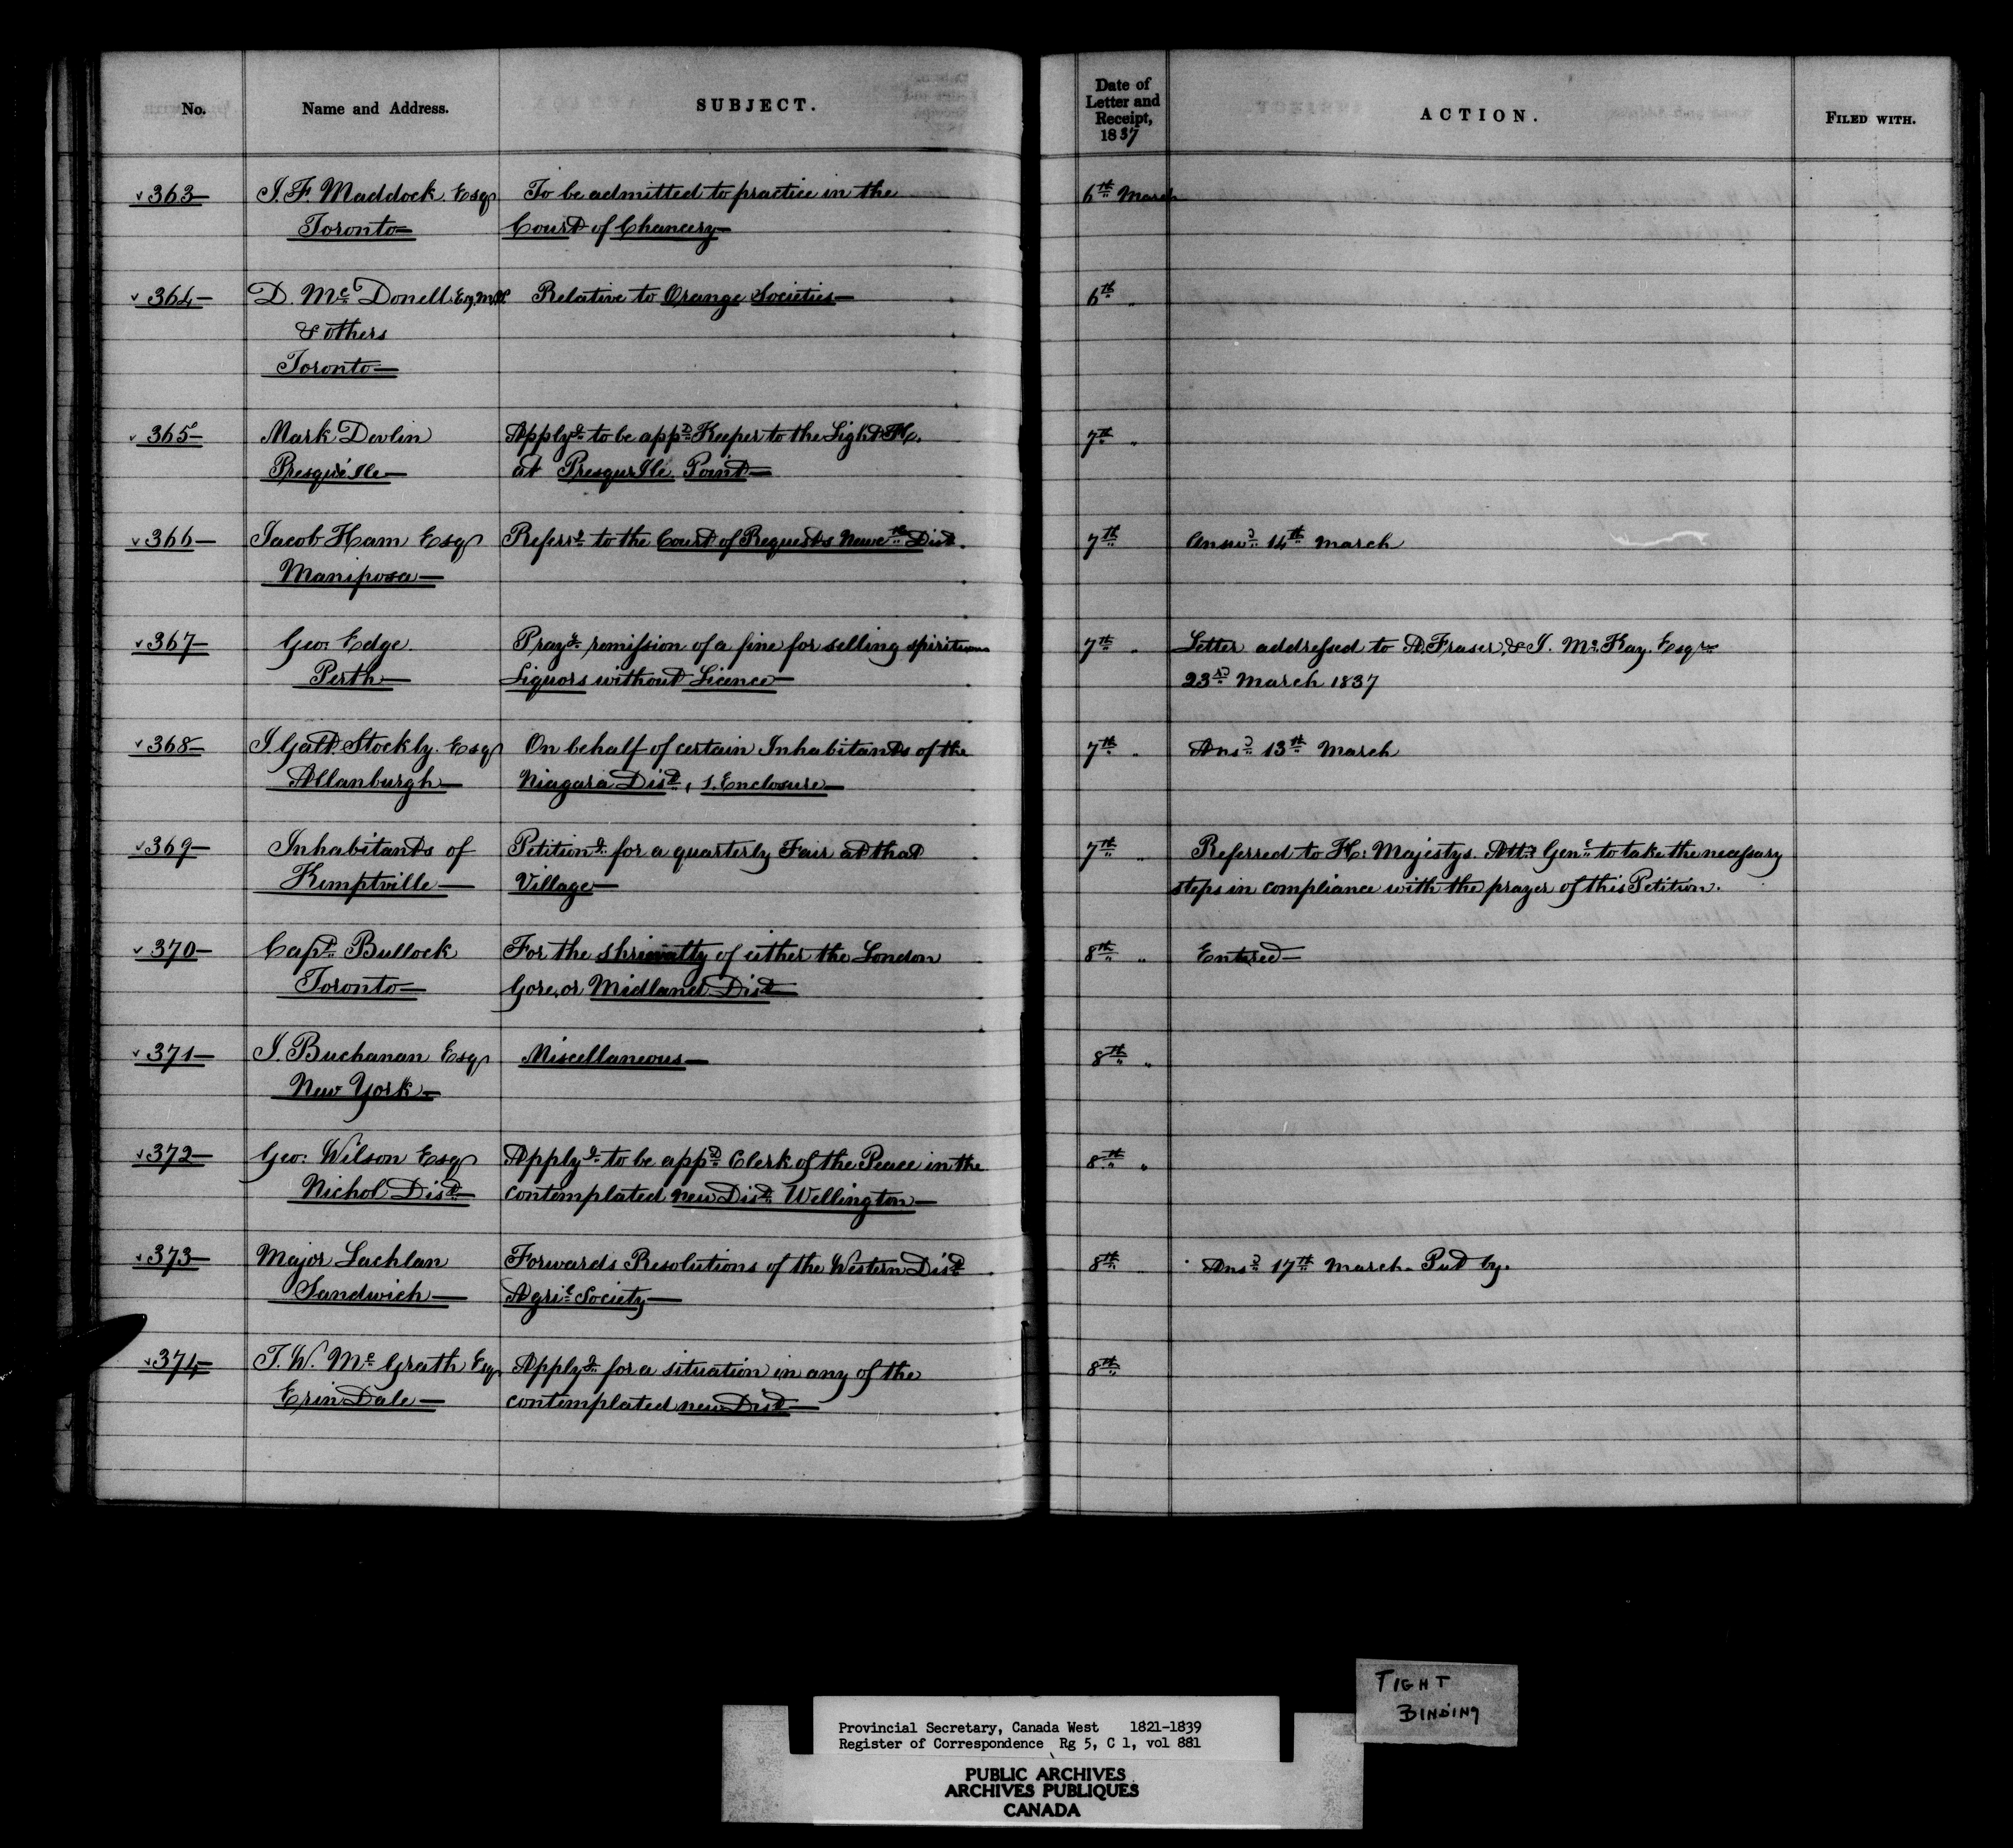 No. Name and Address. SUBJECT. Date of Letter and Receipt, 1837 ACTION. FILED WITH.
363 J. F. Maddock. Esqr To be admitted to practice in the 6th March
Toronto Court of Chancery
364 D. Mc Donell Esq. M.P. Relative to Orange Societies 6th "
& others
Toronto
365 Mark Devlin Applyg to be appd Keeper to the Light H. 7th "
Presqu'ile at Presqu Ile Point
366 Jacob Ham Esqr Referrg to the Court of Requests Newcth Dist. 7th Answd 14th March
Mariposa
367 Geo: Edge. Prayg remission of a fine for selling spirituous 7th " Letter addressed to A. Fraser, & J. Mc Kay. Esqrs
Perth Liquors without Licence 23rd March 1837
368 J Galt Stockly. Esqr On behalf of certain Inhabitants of the 7th " Ansd 13th March
Allanburgh Niagara Dist, 1. Enclosure
369 Inhabitants of Petitiong for a quarterly Fair at that 7th " Referred to H: Majestys. Atty Genl to take the necessary
Kemptville Village steps in compliance with the prayer of this Petition.
370 Capt Bullock For the shrievalty of either the London 8th " Entered
Toronto Gore, or Midland Dist
371 J. Buchanan Esqr Miscellaneous 8th "
New York
372 Geo: Wilson Esqr Applyg to be appd Clerk of the Peace in the 8th "
Nichol Dist contemplated new Dist Wellington
373 Major Lachlan Forwards Resolutions of the Western Dist 8th " Ansd 17th March. Put by.
Sandwich Agril Society
374 T. W. Mc Grath Esqr Applyg for a situation in any of the 8th
Erin Dale contemplated new Dist
TIGHT
BINDING
Provincial Secretary, Canada West 1821-1839
Register of Correspondence Rg 5, C 1, vol 881
PUBLIC ARCHIVES
ARCHIVES PUBLIQUES
CANADA